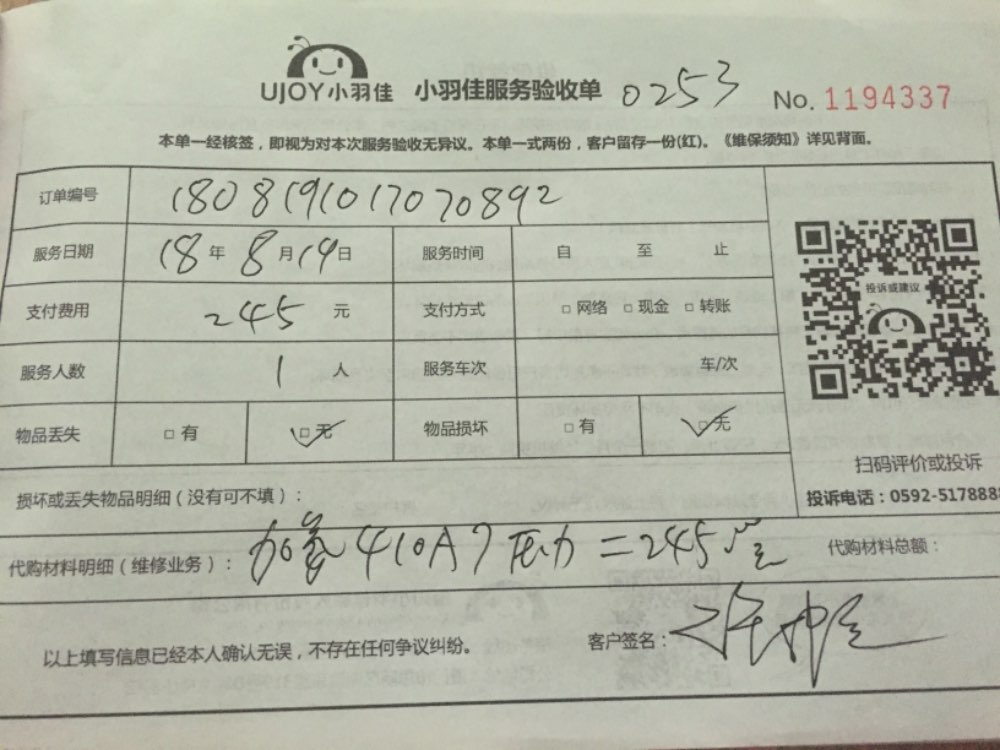 UJOY小羽佳 小羽佳服务验收单 0253 No. 1194337
本单一经核签，即视为对本次服务验收无异议。本单一式两份，客户留存一份(红)。《维保须知》详见背面。
订单编号 1808191017070892
服务日期 18年8月19日 服务时间 自 至 止
支付费用 245 元 支付方式 □网络 □现金 □转账
投诉或建议
服务人数 1 人 服务车次 车/次
物品丢失 □有 □无 物品损坏 □有 □无
扫码评价或投诉
损坏或丢失物品明细（没有可不填）：
投诉电话：0592-5178888
代购材料明细（维修业务）： 加氟410A 7压力=245元 代购材料总额：
以上填写信息已经本人确认无误，不存在任何争议纠纷。 客户签名：